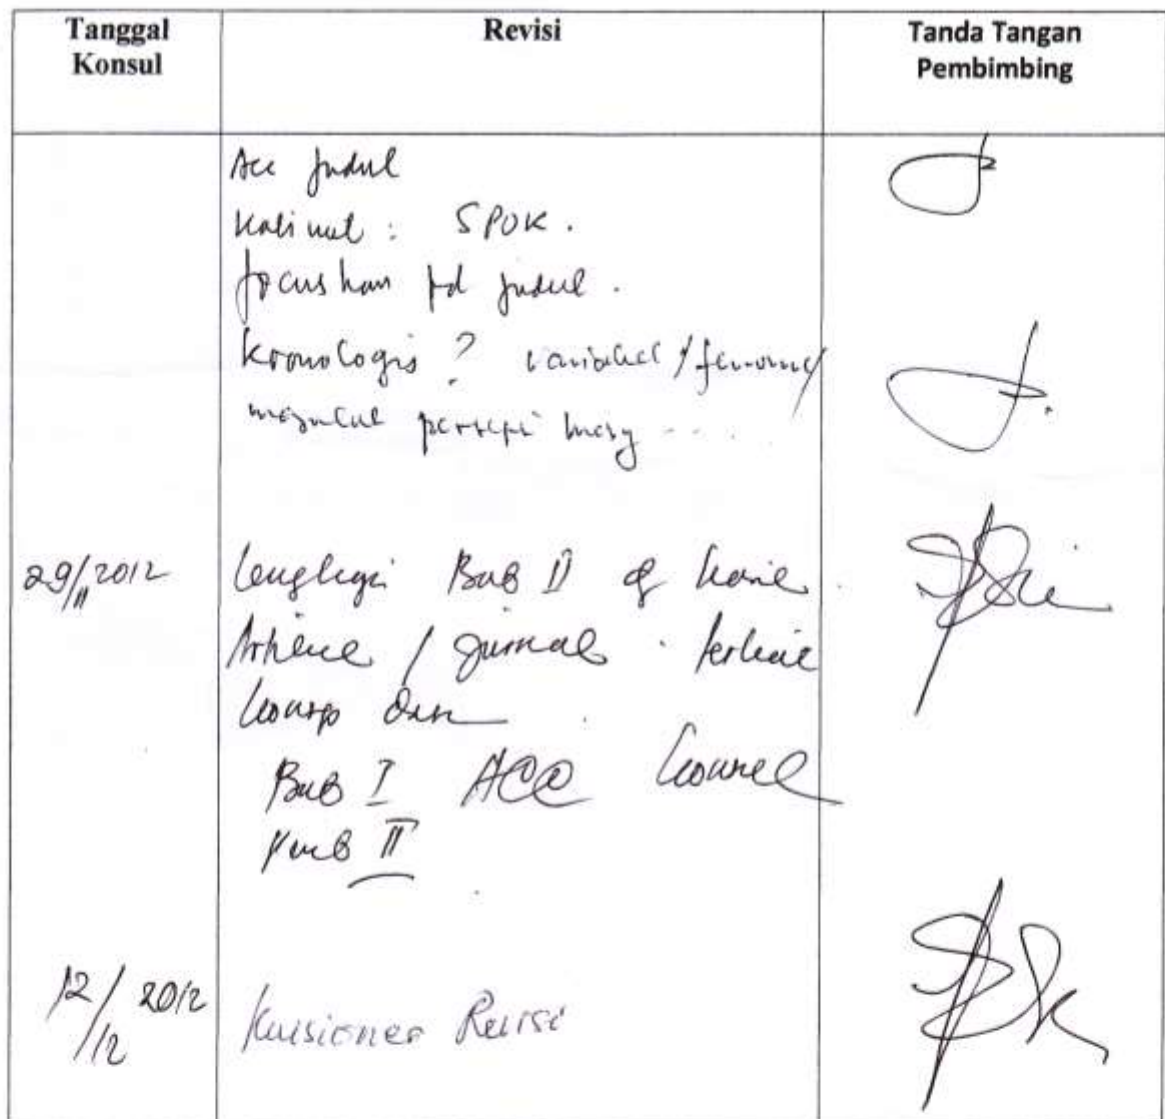 Tanggal Konsul
Revisi
Tanda Tangan Pembimbing
Acc Judul
Kalimat : SPOK.
focuskan pd judul.
Kronologis ? variabel / fenome/
muncul persepsi masy ....
29/11 2012
Lengkapi Bab II dg hasil
Artikel / jurnal terkait
konsep dan
Bab I ACC konsul
Bab II
12/12 2012
Kuisioner Revisi